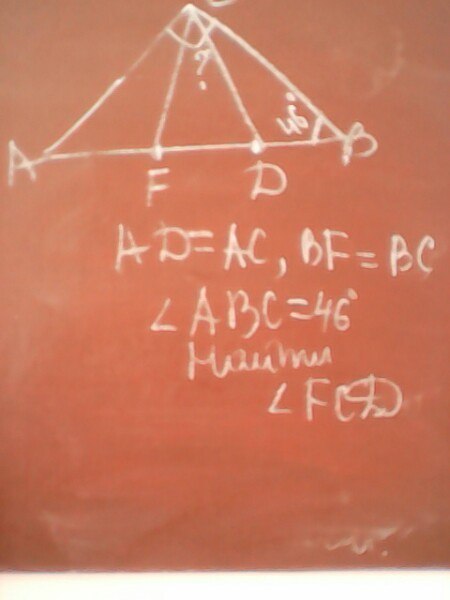 ?
46°
A
B
F
D
AD=AC, BF=BC
∠ABC=46°
Найти
∠FCD